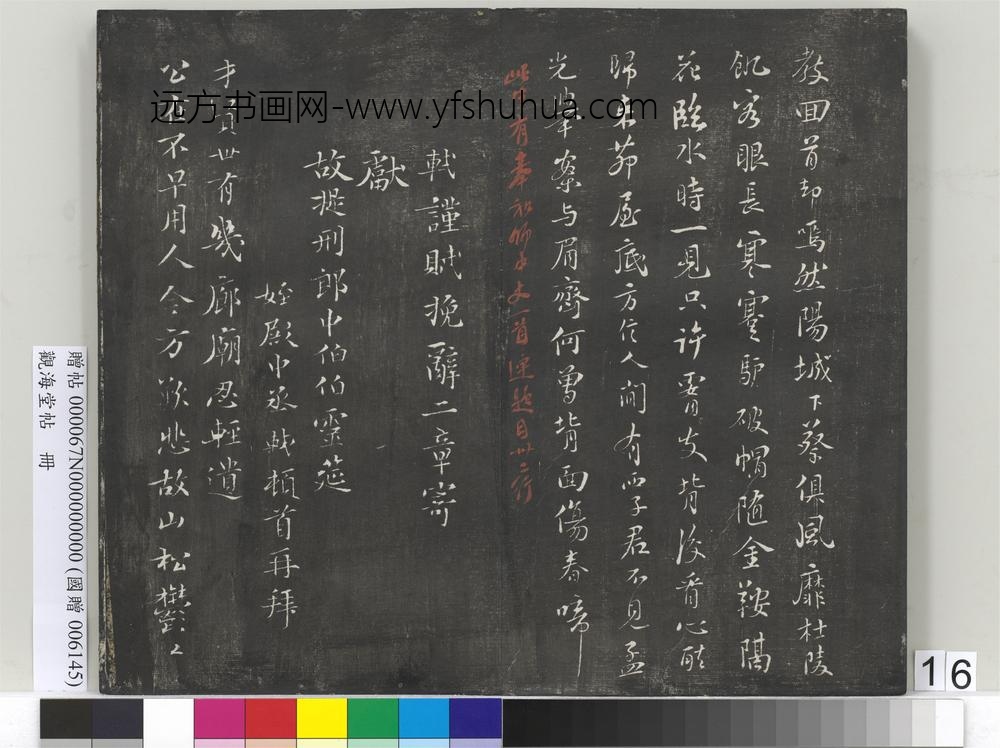 教回首却嫣然陽城下蔡俱風靡杜陵
飢客眼長寒蹇驢破帽隨金鞍隔
花臨水時一見只許腰支背後看心醉
歸來茆屋底方信人間有西子君不見孟
光舉案与眉齊何曾背面傷春啼
此 有 首連題目廿二行
軾謹賦挽辭二章寄
獻
故提刑郎中伯伯靈筵
姪殿中丞軾頓首再拜
才 世有幾廊廟忍輕遺
公 不早用人今方歎悲故山松鬱々
远方书画网-www.yfshuhua.com
贈帖 000067N000000000 (國贈 006145)
觀海堂帖 冊
16